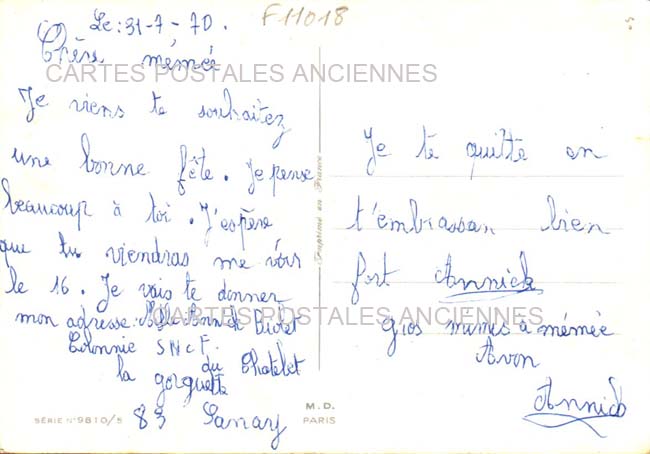 F11018
Le : 31-7-70.
Chère mémée
CARTES POSTALES ANCIENNES
Je viens te souhaitez
une bonne fête. Je pense
beaucoup à toi. J'espère
que tu viendras me voir
le 16. Je vais te donner
mon adresse: Mlle Annick
CARTES POSTALES ANCIENNES
Colonnie SNCF.
du Chatelet
la gorguette
83 Sanary
SÉRIE N° 9810/5
Imprimé en France
Je te quitte en
t'embrassan bien
fort Annick
gros mimis à mémée
Avon
Annick
M.D.
PARIS